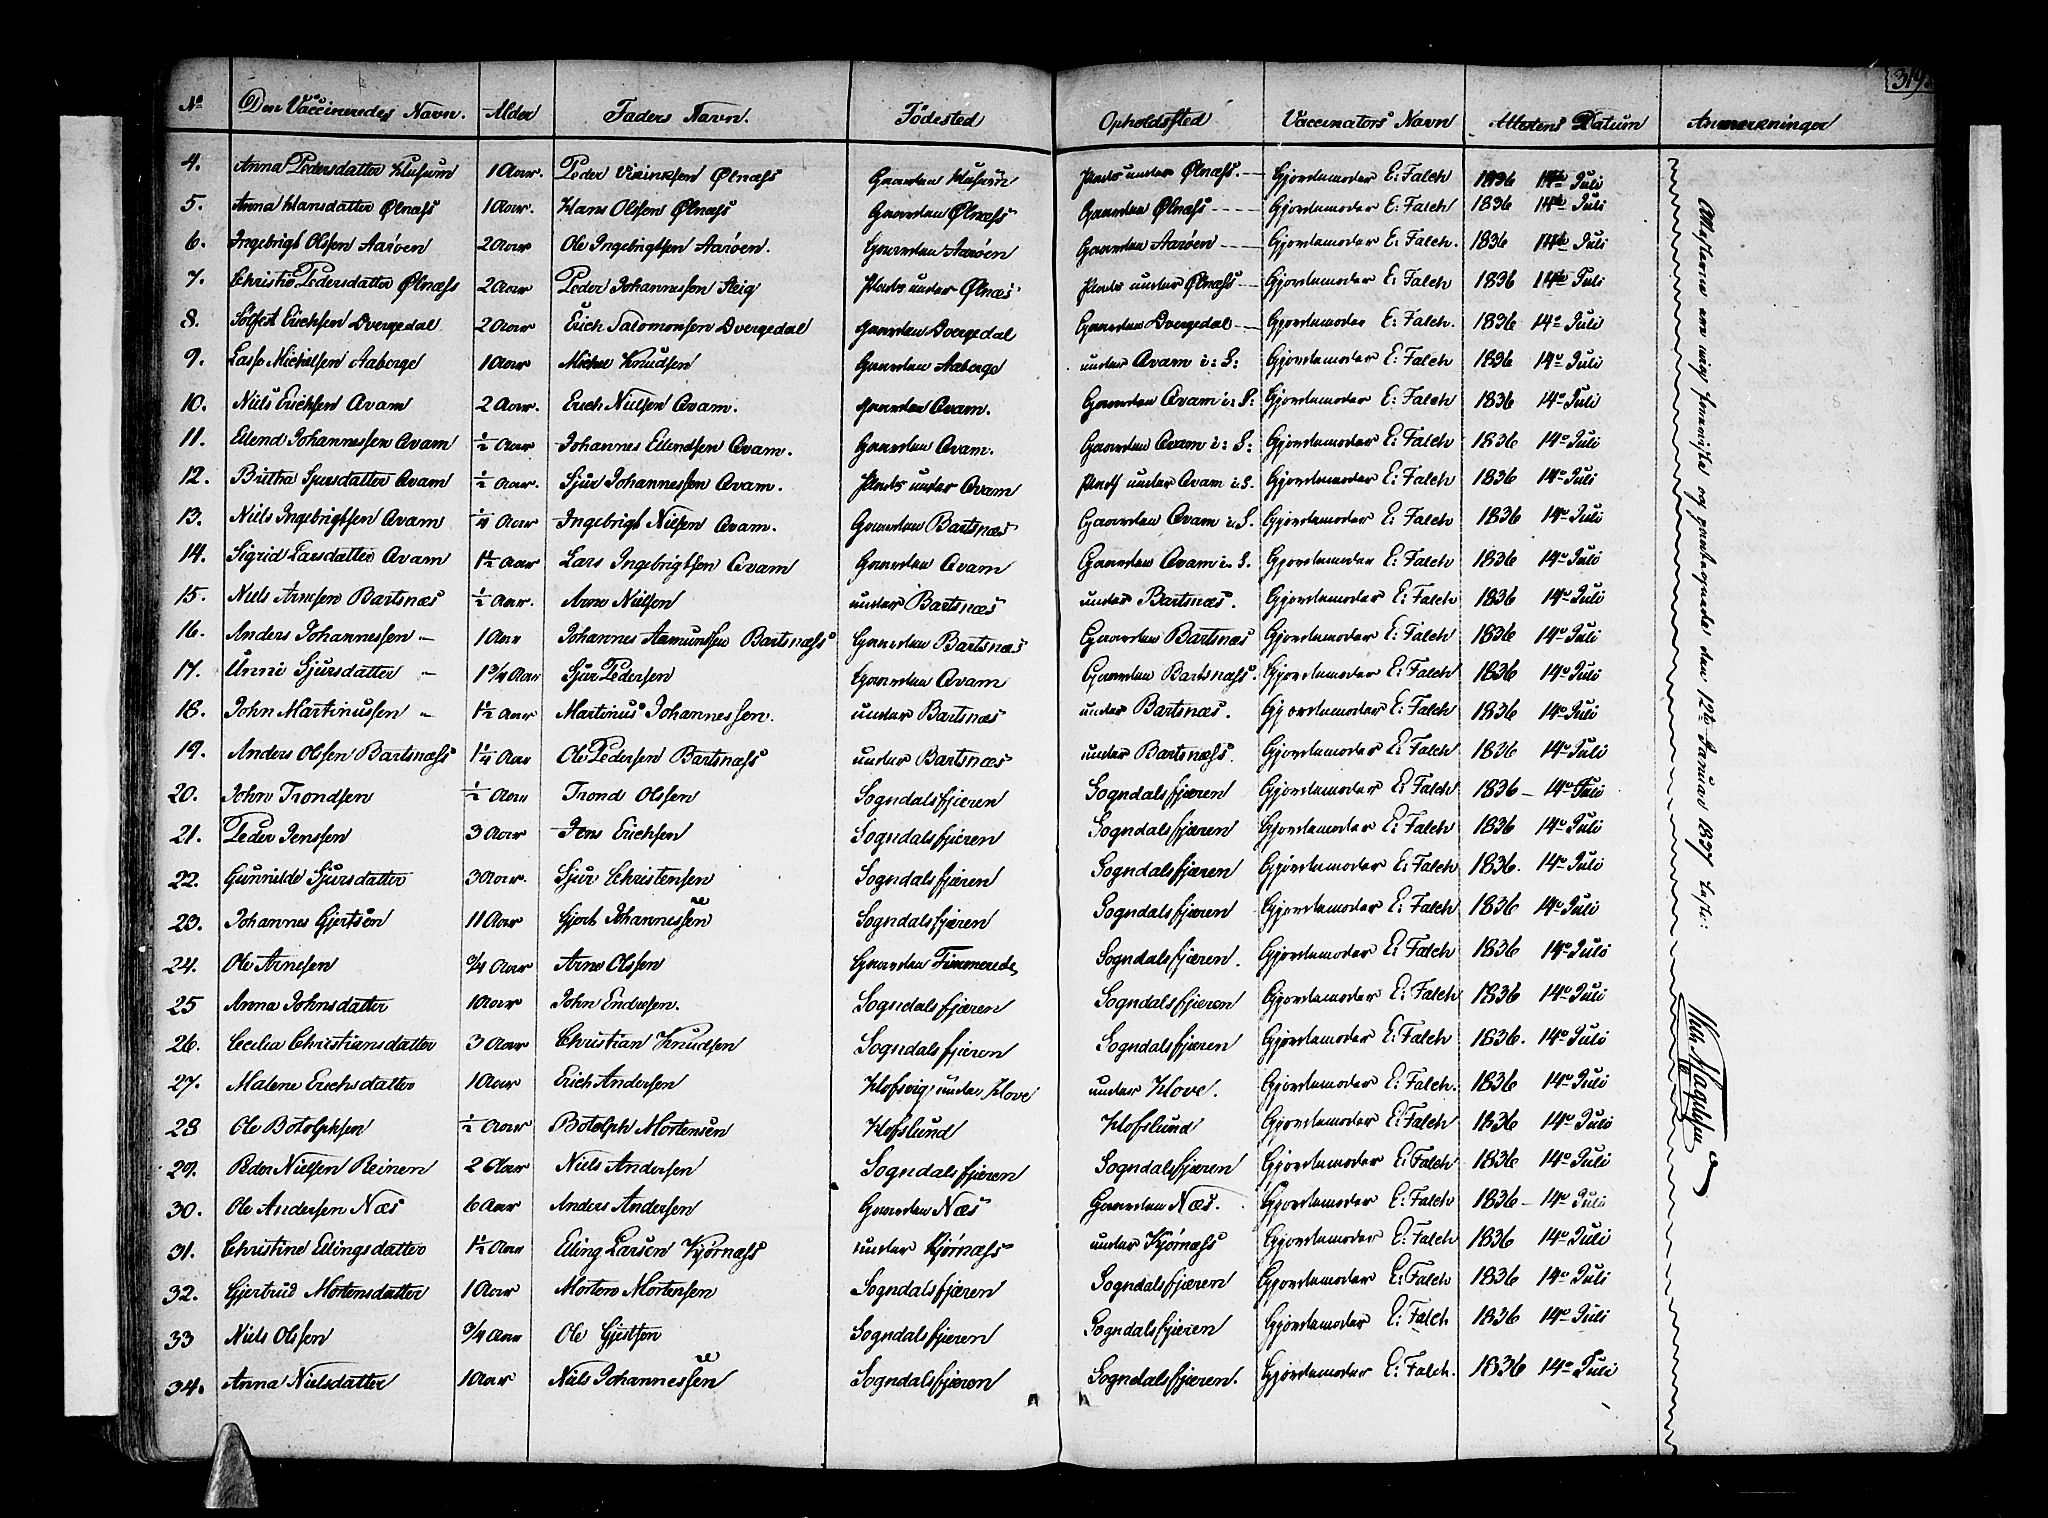 319.
No Den Vaccineredes Navn. Alder Faders Navn. Fødested Opholdsfted Vaccinators Navn Attestens Datum Anmerkninger
4. Anna Pedersdatter Husum 1 Aar. Peder Øllnæss Gaarden Husum Plads under Ølnæss. Gjordemoder E: Falch 1836 14de Juli
5. Anna Hansdatter Ølnæss 1 Aar. Hans Olsen Ølnæss Gaarden Ølnæss Gaarden Ølnæss Gjordemoder E: Falch 1836 14de Juli
6. Ingebrigt Olsen Aarøen 2 Aar Ole Ingebrigtsen Aarøen. Gaarden Aarøen Gaarden Aarøen Gjordemoder E: Falch. 1836 14de Juli
7. Christie Pedersdatter Ølnæss 2 Aar Peder Johannessen Steig Plads under Ølnæs Plads under Ølnæss Gjordemoder E: Falch 1836 14de Juli
8. Sølfest Erichsen Dvergedal 2 Aar Erich Salomonsen Dvergedal Gaarden Dvergedal Gaarden Dvergedal Gjordemoder E: Falch. 1836 14o Juli
9. Lasse Michelsen Aaberge 1 Aar Michel Knudsen Gaarden Aaberge under Qvam i: S: Gjordemoder E: Falch 1836 14o Juli
10. Niels Erichsen Qvam 2 Aar. Erich Nielsen Qvam. Gaarden Qvam. Gaarden Qvam i: S: Gjordemoder E: Falch 1836 14o Juli
11. Ellend Johannessen Qvam ½ Aar Johannes Ellendsen Qvam. Gaarden Qvam. Gaarden Qvam i: S: Gjordemoder E: Falch 1836 14o Juli
12. Britha Sjursdatter Qvam ½ Aar. Sjur Johannessen Qvam. Plads under Qvam Plads under Qvam i. S. Gjordemoder E: Falch 1836 14o Juli
13. Niels Ingebrigtsen Qvam ¼ Aar Ingebrigt Nielsen Qvam. Gaarden Bartsnæs Gaarden Qvam i. S. Gjordemoder E: Falch 1836 14o Juli
14. Sigrid Larsdatter Qvam 1½ Aar Lars Ingebrigtsen Qvam Gaarden Qvam Gaarden Qvam i. S. Gjordemoder E: Falch 1836 14o Juli
15. Niels Arnesen Bartsnæs ½ Aar. Arne Nielsen under Bartsnæs under Bartsnæs. Gjordemoder E: Falch 1836 14o Juli
16. Anders Johannessen - 1 Aar Johannes Aamundsen Bartsnæss Gaarden Bartsnæs Gaarden Bartsnæs Gjordemoder E: Falch 1836 14o Juli
17. Unni Sjursdatter - 1¾ Aar Sjur Pedersen Gaarden Qvam Gaarden Bartsnæss. Gjordemoder E: Falch 1836 14o Juli
18. John Martinussen - 1½ Aar Martinus Johannessen. under Bartsnæs under Bartsnæs. Gjordemoder E: Falch 1836 14o Juli
19. Anders Olsen Bartsnæss 1¼ Aar Ole Pedersen Bartsnæss under Bartsnæs under Bartsnæss. Gjordemoder E: Falch 1836 14o Juli
20. John Trondsen ½ Aar Trond Olssen Sogndalsfjæren Sogndalsfjæren Gjordemoder E: Falch 1836 - 14o Juli
21. Peder Jenssen 3 Aar Jens Erichsen Sogndalsfjæren Sogndalsfjæren Gjordemoder E: Falch 1836 14o Juli
22. Gunnilde Sjursdatter 3 Aar. Sjur Christensen Sogndalsfjæren Sogndalsfjæren Gjordemoder E: Falch 1836. 14o Juli
23. Johannes Gjertsen 11 Aar Gjert Johannessen Sogndalsfjæren Sogndalsfjæren Gjordemoder E: Falch 1836 14o Juli
24. Ole Arnesen ¾ Aar Arne Olssen Gaarden Fimmereide Sogndalsfjæren. Gjordemoder E: Falch 1836 14o Juli
25 Anna Johnsdatter 1 Aar John Endresen. Sogndalsfjæren Sogndalsfjæren Gjordemoder E: Falch 1836 14o Juli
26. Cecilia Christiansdatter 3 Aar Christian Knudsen Sogndalsfjæren Sogndalsfjæren Gjordemoder E: Falch 1836. 14o Juli
27. Malene Erichsdatter 1 Aar Erich Andersen Hofsvig under Hove under Hove. Gjordemoder E: Falch. 1836 14o Juli
28 Ole Botolphsen ½ Aar Botolph Mortensen Hofslund Hofslund Gjordemoder E: Falch 1836 14o Juli
29. Peder Nielsen Reinen 2 Aar Niels Andersen Sogndalsfjæren Sogndalsfjæren Gjordemoder E: Falch 1836 14o Juli
30. Ole Andersen Næs 6 Aar Anders Andersen Gaarden Næs Gaarden Næs. Gjordemoder E: Falch 1836 - 14o Juli
31. Christine Ellingsdatter 1½ Aar Elling Larsen Kjørnæss under Kjørnæss under Kjørnæss Gjordemoder E: Falch 1836 14o Juli
32. Gjertrud Mortensdatter 1 Aar Morten Mortensen Sogndalsfjæren Sogndalsfjæren Gjordemoder E: Falch 1836 14o Juli
33 Niels Olssen ¾ Aar Ole Gjertsen Sogndalsfjæren Sogndalsfjæren Gjordemoder E: Falch 1836 14o Juli
34. Anna Nielsdatter 1 Aar Niels Johannessen Sogndalsfjæren Sogndalsfjæren. Gjordemoder E: Falch. 1836 14o Juli
Attesterne ere mig foreviste og den 12te Januar 1837